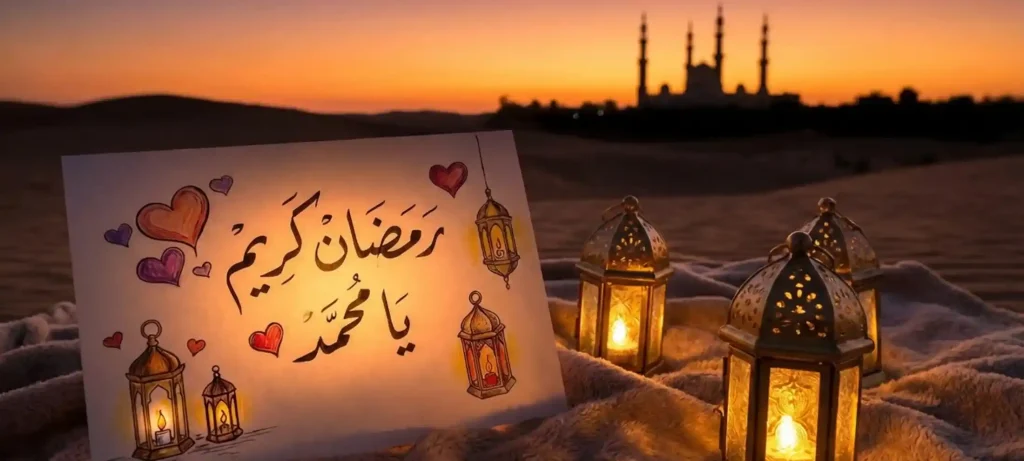 رمضان كريم
يا محمد